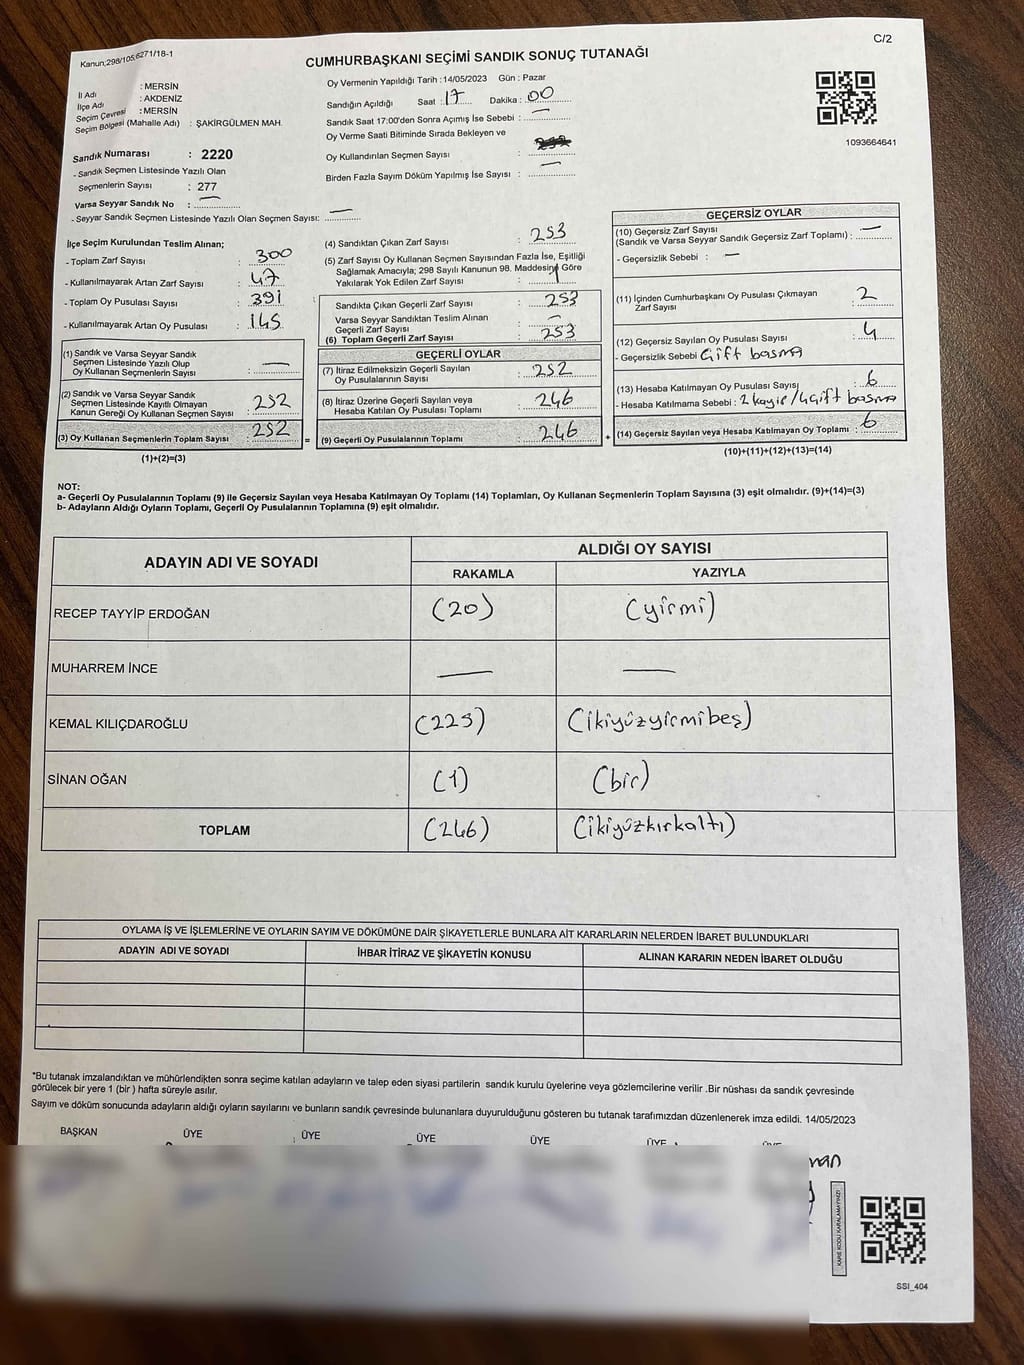 Kanun;298/105,6271/18-1
C/2
CUMHURBAŞKANI SEÇİMİ SANDIK SONUÇ TUTANAĞI
İl Adı : MERSİN
İlçe Adı : AKDENİZ
Seçim Çevresi : MERSİN
Seçim Bölgesi (Mahalle Adı) : ŞAKİRGÜLMEN MAH.
Sandık Numarası : 2220
- Sandık Seçmen Listesinde Yazılı Olan
Seçmenlerin Sayısı : 277
Varsa Seyyar Sandık No : —
- Seyyar Sandık Seçmen Listesinde Yazılı Olan Seçmen Sayısı: —
Oy Vermenin Yapıldığı Tarih : 14/05/2023 Gün : Pazar
Sandığın Açıldığı Saat : 17 Dakika : 00
Sandık Saat 17:00'den Sonra Açımış İse Sebebi : —
Oy Verme Saati Bitiminde Sırada Bekleyen ve
Oy Kullandırılan Seçmen Sayısı :
Birden Fazla Sayım Döküm Yapılmış İse Sayısı : —
1093664641
İlçe Seçim Kurulundan Teslim Alınan;
- Toplam Zarf Sayısı : 300
- Kullanılmayarak Artan Zarf Sayısı : 47
- Toplam Oy Pusulası Sayısı : 391
- Kullanılmayarak Artan Oy Pusulası : 145
(1) Sandık ve Varsa Seyyar Sandık
Seçmen Listesinde Yazılı Olup
Oy Kullanan Seçmenlerin Sayısı : —
(2) Sandık ve Varsa Seyyar Sandık
Seçmen Listesinde Kayıtlı Olmayan
Kanun Gereği Oy Kullanan Seçmen Sayısı : 252
(3) Oy Kullanan Seçmenlerin Toplam Sayısı : 252
(1)+(2)=(3)
(4) Sandıktan Çıkan Zarf Sayısı : 253
(5) Zarf Sayısı Oy Kullanan Seçmen Sayısından Fazla İse, Eşitliği
Sağlamak Amacıyla; 298 Sayılı Kanunun 98. Maddesine Göre
Yakılarak Yok Edilen Zarf Sayısı : 1
Sandıkta Çıkan Geçerli Zarf Sayısı : 253
Varsa Seyyar Sandıktan Teslim Alınan
Geçerli Zarf Sayısı : —
(6) Toplam Geçerli Zarf Sayısı : 253
GEÇERLİ OYLAR
(7) İtiraz Edilmeksizin Geçerli Sayılan
Oy Pusulalarının Sayısı : 252
(8) İtiraz Üzerine Geçerli Sayılan veya
Hesaba Katılan Oy Pusulası Toplamı : 246
= (9) Geçerli Oy Pusulalarının Toplamı : 246 +
GEÇERSİZ OYLAR
(10) Geçersiz Zarf Sayısı
(Sandık ve Varsa Seyyar Sandık Geçersiz Zarf Toplamı) : —
- Geçersizlik Sebebi : —
(11) İçinden Cumhurbaşkanı Oy Pusulası Çıkmayan
Zarf Sayısı : 2
(12) Geçersiz Sayılan Oy Pusulası Sayısı : 4
- Geçersizlik Sebebi Çift basma
(13) Hesaba Katılmayan Oy Pusulası Sayısı : 6
- Hesaba Katılmama Sebebi : 2 kayıp/4çift basma
(14) Geçersiz Sayılan veya Hesaba Katılmayan Oy Toplamı : 6
(10)+(11)+(12)+(13)=(14)
NOT:
a- Geçerli Oy Pusulalarının Toplamı (9) ile Geçersiz Sayılan veya Hesaba Katılmayan Oy Toplamı (14) Toplamları, Oy Kullanan Seçmenlerin Toplam Sayısına (3) eşit olmalıdır. (9)+(14)=(3)
b- Adayların Aldığı Oyların Toplamı, Geçerli Oy Pusulalarının Toplamına (9) eşit olmalıdır.
ADAYIN ADI VE SOYADI ALDIĞI OY SAYISI
RAKAMLA YAZIYLA
RECEP TAYYİP ERDOĞAN (20) (yirmi)
MUHARREM İNCE — —
KEMAL KILIÇDAROĞLU (225) (ikiyüzyirmibeş)
SİNAN OĞAN (1) (bir)
TOPLAM (246) (ikiyüzkırkaltı)
OYLAMA İŞ VE İŞLEMLERİNE VE OYLARIN SAYIM VE DÖKÜMÜNE DAİR ŞİKAYETLERLE BUNLARA AİT KARARLARIN NELERDEN İBARET BULUNDUKLARI
ADAYIN ADI VE SOYADI İHBAR İTİRAZ VE ŞİKAYETİN KONUSU ALINAN KARARIN NEDEN İBARET OLDUĞU
*Bu tutanak imzalandıktan ve mühürlendikten sonra seçime katılan adayların ve talep eden siyasi partilerin sandık kurulu üyelerine veya gözlemcilerine verilir .Bir nüshası da sandık çevresinde
görülecek bir yere 1 (bir ) hafta süreyle asılır.
Sayım ve döküm sonucunda adayların aldığı oyların sayılarını ve bunların sandık çevresinde bulunanlara duyurulduğunu gösteren bu tutanak tarafımızdan düzenlenerek imza edildi. 14/05/2023
BAŞKAN ÜYE ÜYE ÜYE ÜYE ÜYE ÜYE
KARE KODU KARALAMAYINIZ!
SSI_404